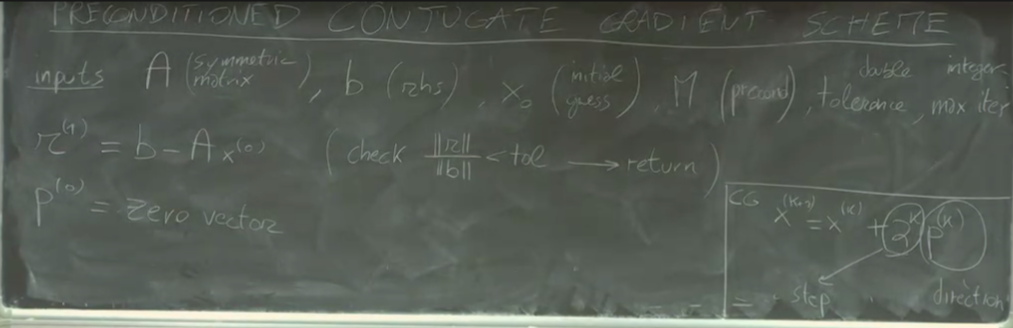 PRECONDITIONED CONJUGATE GRADIENT SCHEME
inputs A (symmetric matrix), b (rhs), x₀ (initial guess), M (precond), double tolerance, integer max iter
r⁽¹⁾ = b - A x⁽⁰⁾ (check ||r||/||b|| < tol → return)
p⁽⁰⁾ = zero vector
CG x⁽ᵏ⁺¹⁾ = x⁽ᵏ⁾ + αᵏ p⁽ᵏ⁾
step direction